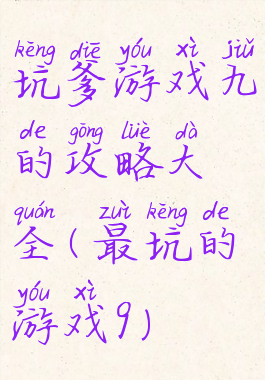 kēng diē yóu xì jiǔ
坑爹游戏九
de gōng lüè dà
的攻略大
quán zuì kēng de
全(最坑的
yóu xì
游戏9)